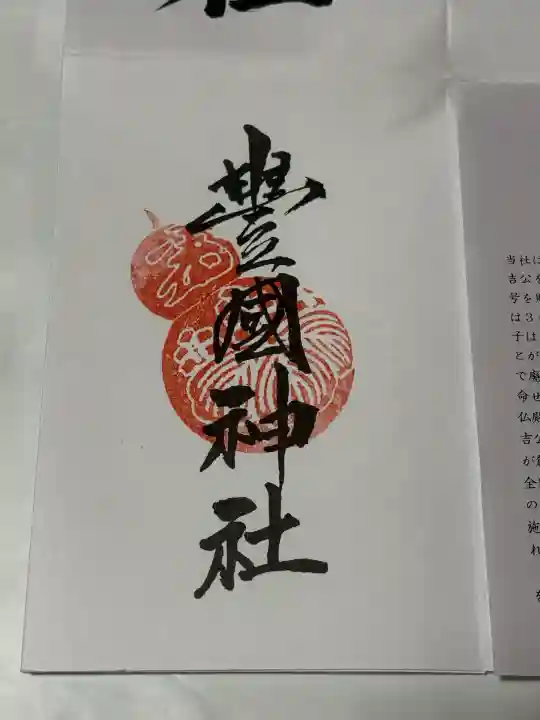 社
豐國神社
当社は
吉公を
号を
は3
子は
とが
で廃
命せ
仏殿
吉公
が
全
の
施
れ
を